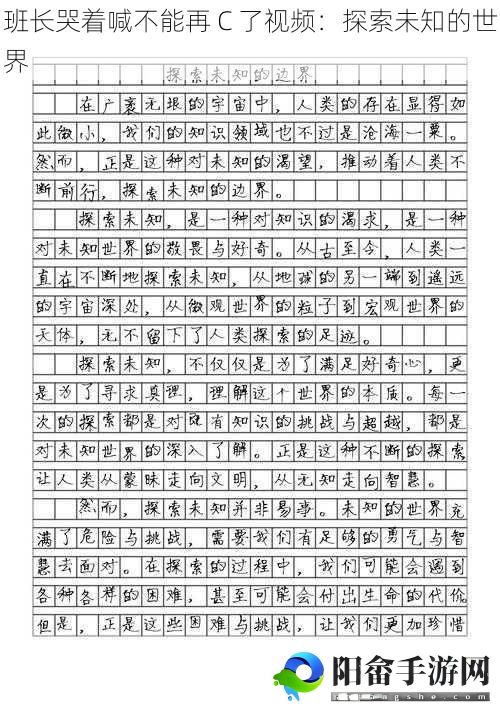 班长哭着喊不能再 C 了视频：探索未知的世
界
探索未知的边界
在广袤无垠的宇宙中，人类的存在显得如
此微小，我们的知识领域也不过是沧海一粟。
然而，正是这种对未知的渴望，推动着人类不
断前行，探索未知的边界。
探索未知，是一种对知识的渴求，是一种
对未知世界的敬畏与好奇。从古至今，人类一
直在不断地探索未知，从地球的另一端到遥远
的宇宙深处，从微观世界的粒子到宏观世界的
天体，无不留下了人类探索的足迹。
探索未知，不仅仅是为了满足好奇心，更
是为了寻求真理，理解这个世界的本质。每一
次的探索都是对既有知识的挑战与超越，都是
对未知世界的深入了解。正是这种不断的探索
让人类从蒙昧走向文明，从无知走向智慧。
然而，探索未知并非易事。未知的世界充
满了危险与挑战，需要我们有足够的勇气与智
慧去面对。在探索的过程中，我们可能会遇到
各种各样的困难，甚至可能会付出生命的代价。
但是，正是这些困难与挑战，让我们更加珍惜
阳畲手游网